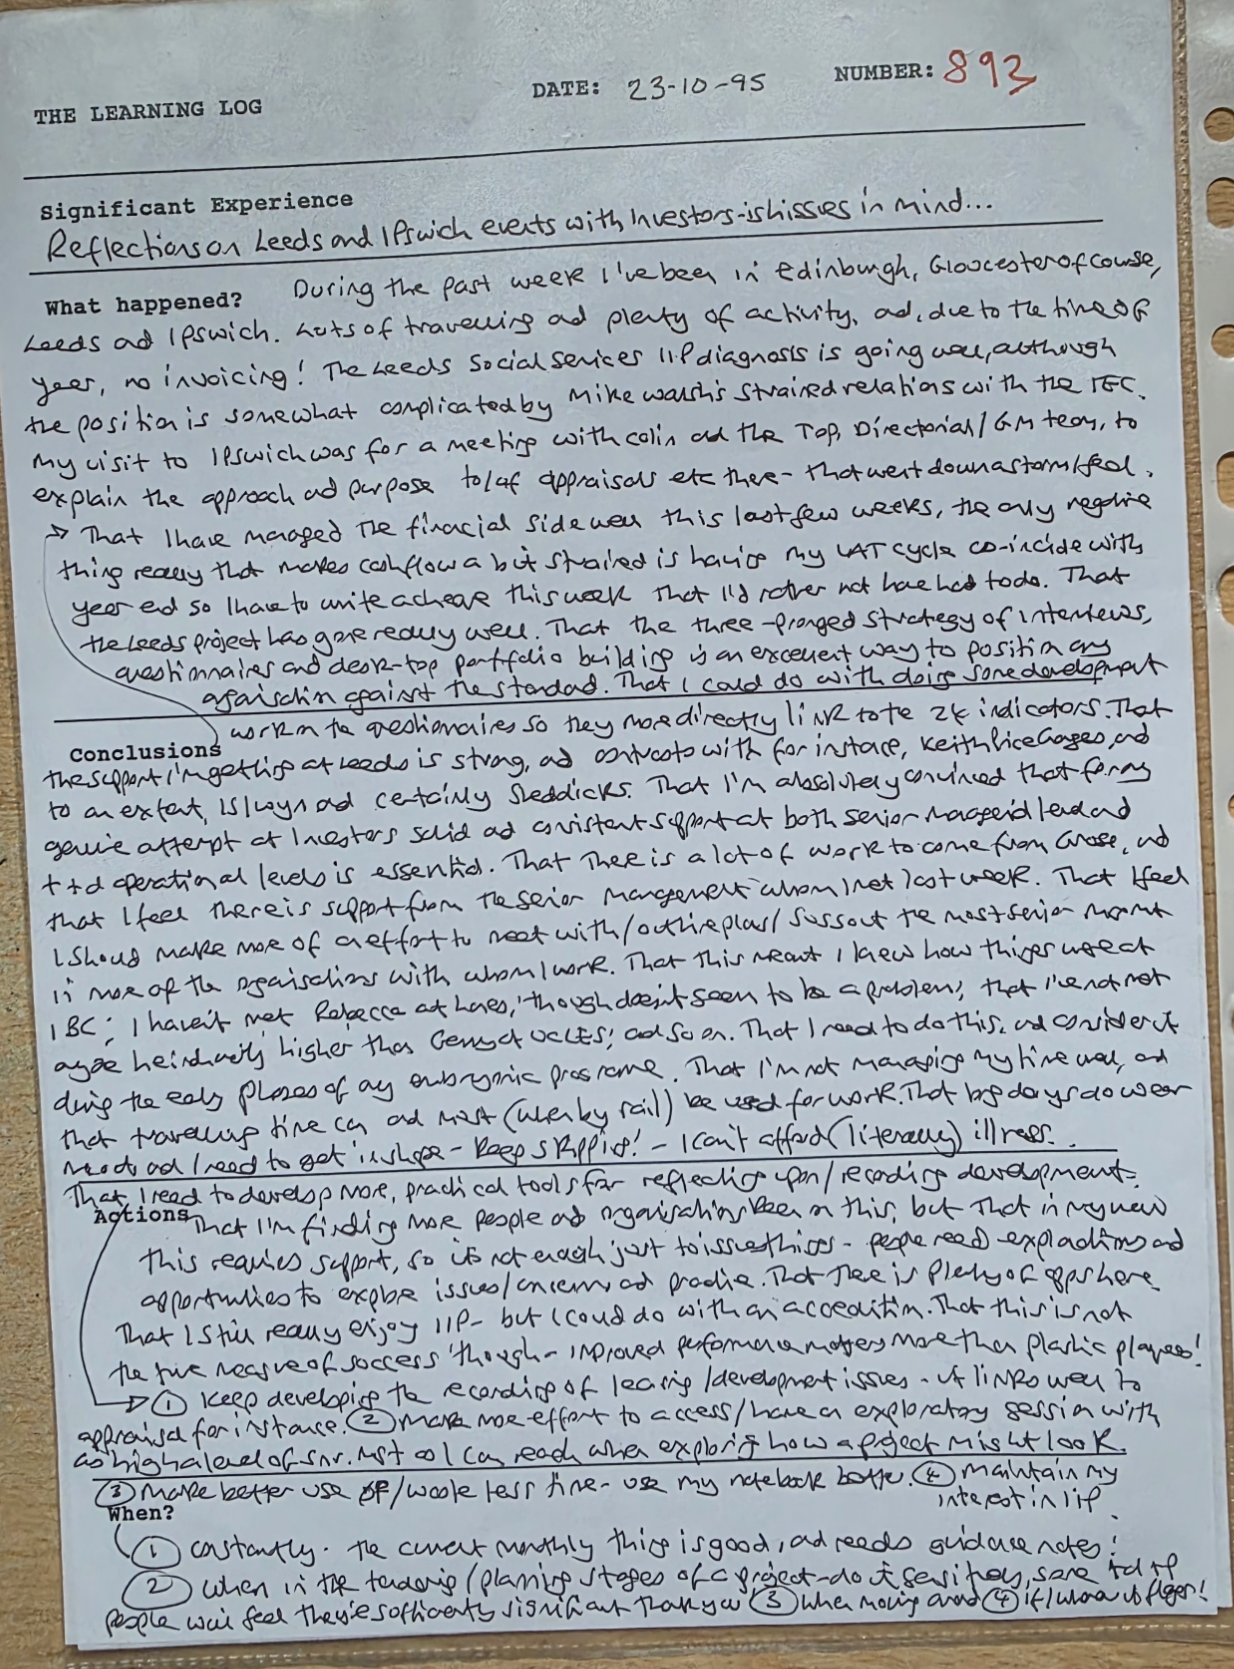 THE LEARNING LOG
DATE: 23-10-95
NUMBER: 893
Significant Experience
Reflections on Leeds and Ipswich events with Investors-ish issues in mind...
What happened? During the past week I've been in Edinburgh, Gloucester of course,
Leeds ad Ipswich. Lots of travelling ad plenty of activity, ad, due to the time of
year, no invoicing! The Leeds Social Services IIP diagnosis is going well, although
the position is somewhat complicated by Mike Walsh's strained relations with the TEC.
My visit to Ipswich was for a meeting with Colin ad the Top, Directorial/GM team, to
explain the approach ad purpose to/of appraisals etc there - that went down a storm I feel.
→ That I have managed the financial side well this last few weeks, the only negative
thing really that makes cashflow a bit strained is having my VAT cycle co-incide with
year end so I have to write a cheque this week that I'd rather not have had to do. That
the Leeds project has gone really well. That the three-pronged strategy of interviews,
questionnaires and desk-top portfolio building is an excellent way to position any
organisation against the standard. That I could do with doing some development
work on the questionnaires so they more directly link to the 24 indicators. That
Conclusions
the support I'm getting at Leeds is strong, ad contrasts with for instance, Keith Price Gages, ad
to an extent, ad certainly Sheddicks. That I'm absolutely convinced that for any
genuine attempt at Investors solid ad consistent support at both senior managerial lead and
t+d operational levels is essential. That there is a lot of work to come from Grose, ad
that I feel there is support from the senior management whom I met last week. That I feel
I should make more of an effort to meet with/outline plans/suss out the most senior mgmt
in more of the organisations with whom I work. That this meant I knew how things were at
IBC; I haven't met Rebecca at Lares, 'though doesn't seem to be a problem; that I've not met
anyone hierarchically higher than Gerry at UCLES; ad so on. That I need to do this, ad consider it
during the early phases of any embryonic programme. That I'm not managing my time well, ad
that travelling time can ad must (when by rail) be used for work. That long days do wear
me out, ad I need to get in shape - keep skipping! - I can't afford (literally) illness.
That I need to develop more, practical tools for reflecting upon/recording development.
Actions That I'm finding more people ad organisations keen on this, but that in my view
this requires support, so it's not enough just to issue things - people need explanations ad
opportunities to explore issues/concerns ad practice. That there is plenty of opps here.
That I still really enjoy IIP - but I could do with an accreditation. That this is not
the true measure of success 'though - improved performance matters more than plastic plaques!
→ ① Keep developing the recording of learning/development issues - it links well to
appraisal for instance. ② Make more effort to access/have an exploratory session with
as high a level of snr. mgt as I can reach when exploring how a project might look.
③ Make better use of/waste less time - use my notebook better. ④ Maintain my
interest in IIP.
When?
① Constantly. The current monthly thing is good, ad needs guidance notes!
② When in the tendering/planning stages of a project - do it sensitively, some t+d
people will feel they're sufficiently significant thank you ③ When moving around ④ if/when it flags!